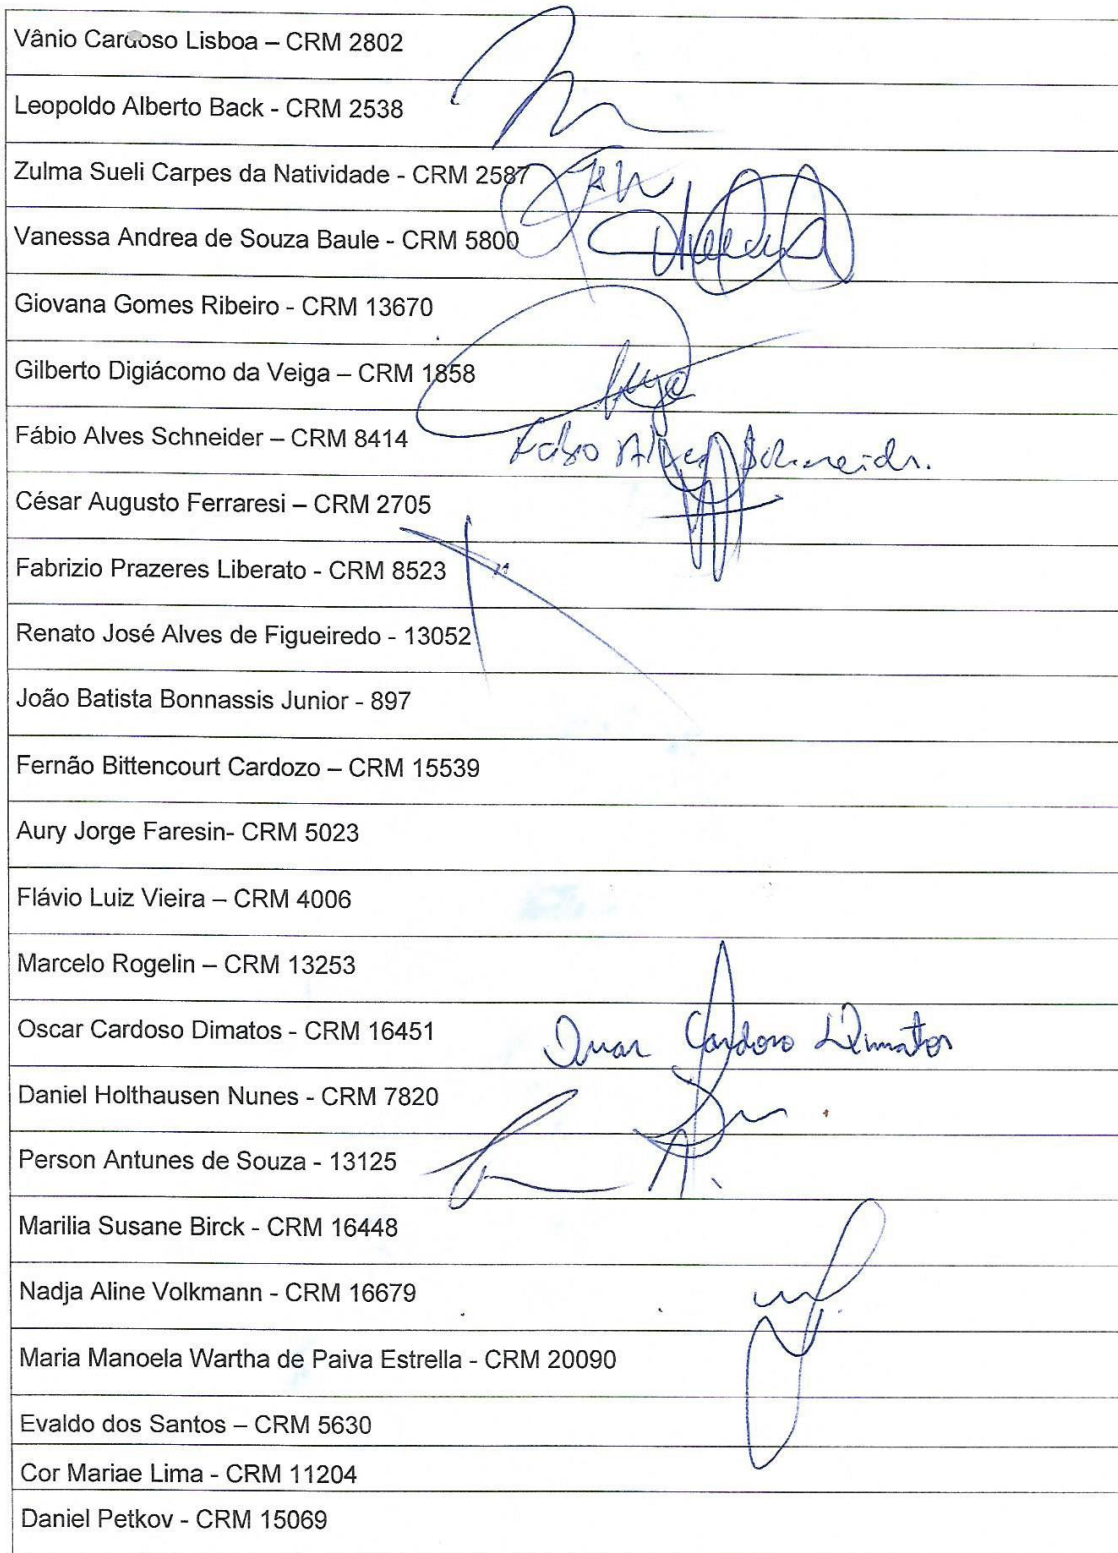 Vânio Cardoso Lisboa – CRM 2802
Leopoldo Alberto Back - CRM 2538
Zulma Sueli Carpes da Natividade - CRM 2587
Vanessa Andrea de Souza Baule - CRM 5800
Giovana Gomes Ribeiro - CRM 13670
Gilberto Digiácomo da Veiga – CRM 1858
Fábio Alves Schneider – CRM 8414 Fabio Alves Schneider.
César Augusto Ferraresi – CRM 2705
Fabrizio Prazeres Liberato - CRM 8523
Renato José Alves de Figueiredo - 13052
João Batista Bonnassis Junior - 897
Fernão Bittencourt Cardozo – CRM 15539
Aury Jorge Faresin- CRM 5023
Flávio Luiz Vieira – CRM 4006
Marcelo Rogelin – CRM 13253
Oscar Cardoso Dimatos - CRM 16451 Oscar Cardoso Dimatos
Daniel Holthausen Nunes - CRM 7820
Person Antunes de Souza - 13125
Marilia Susane Birck - CRM 16448
Nadja Aline Volkmann - CRM 16679
Maria Manoela Wartha de Paiva Estrella - CRM 20090
Evaldo dos Santos – CRM 5630
Cor Mariae Lima - CRM 11204
Daniel Petkov - CRM 15069